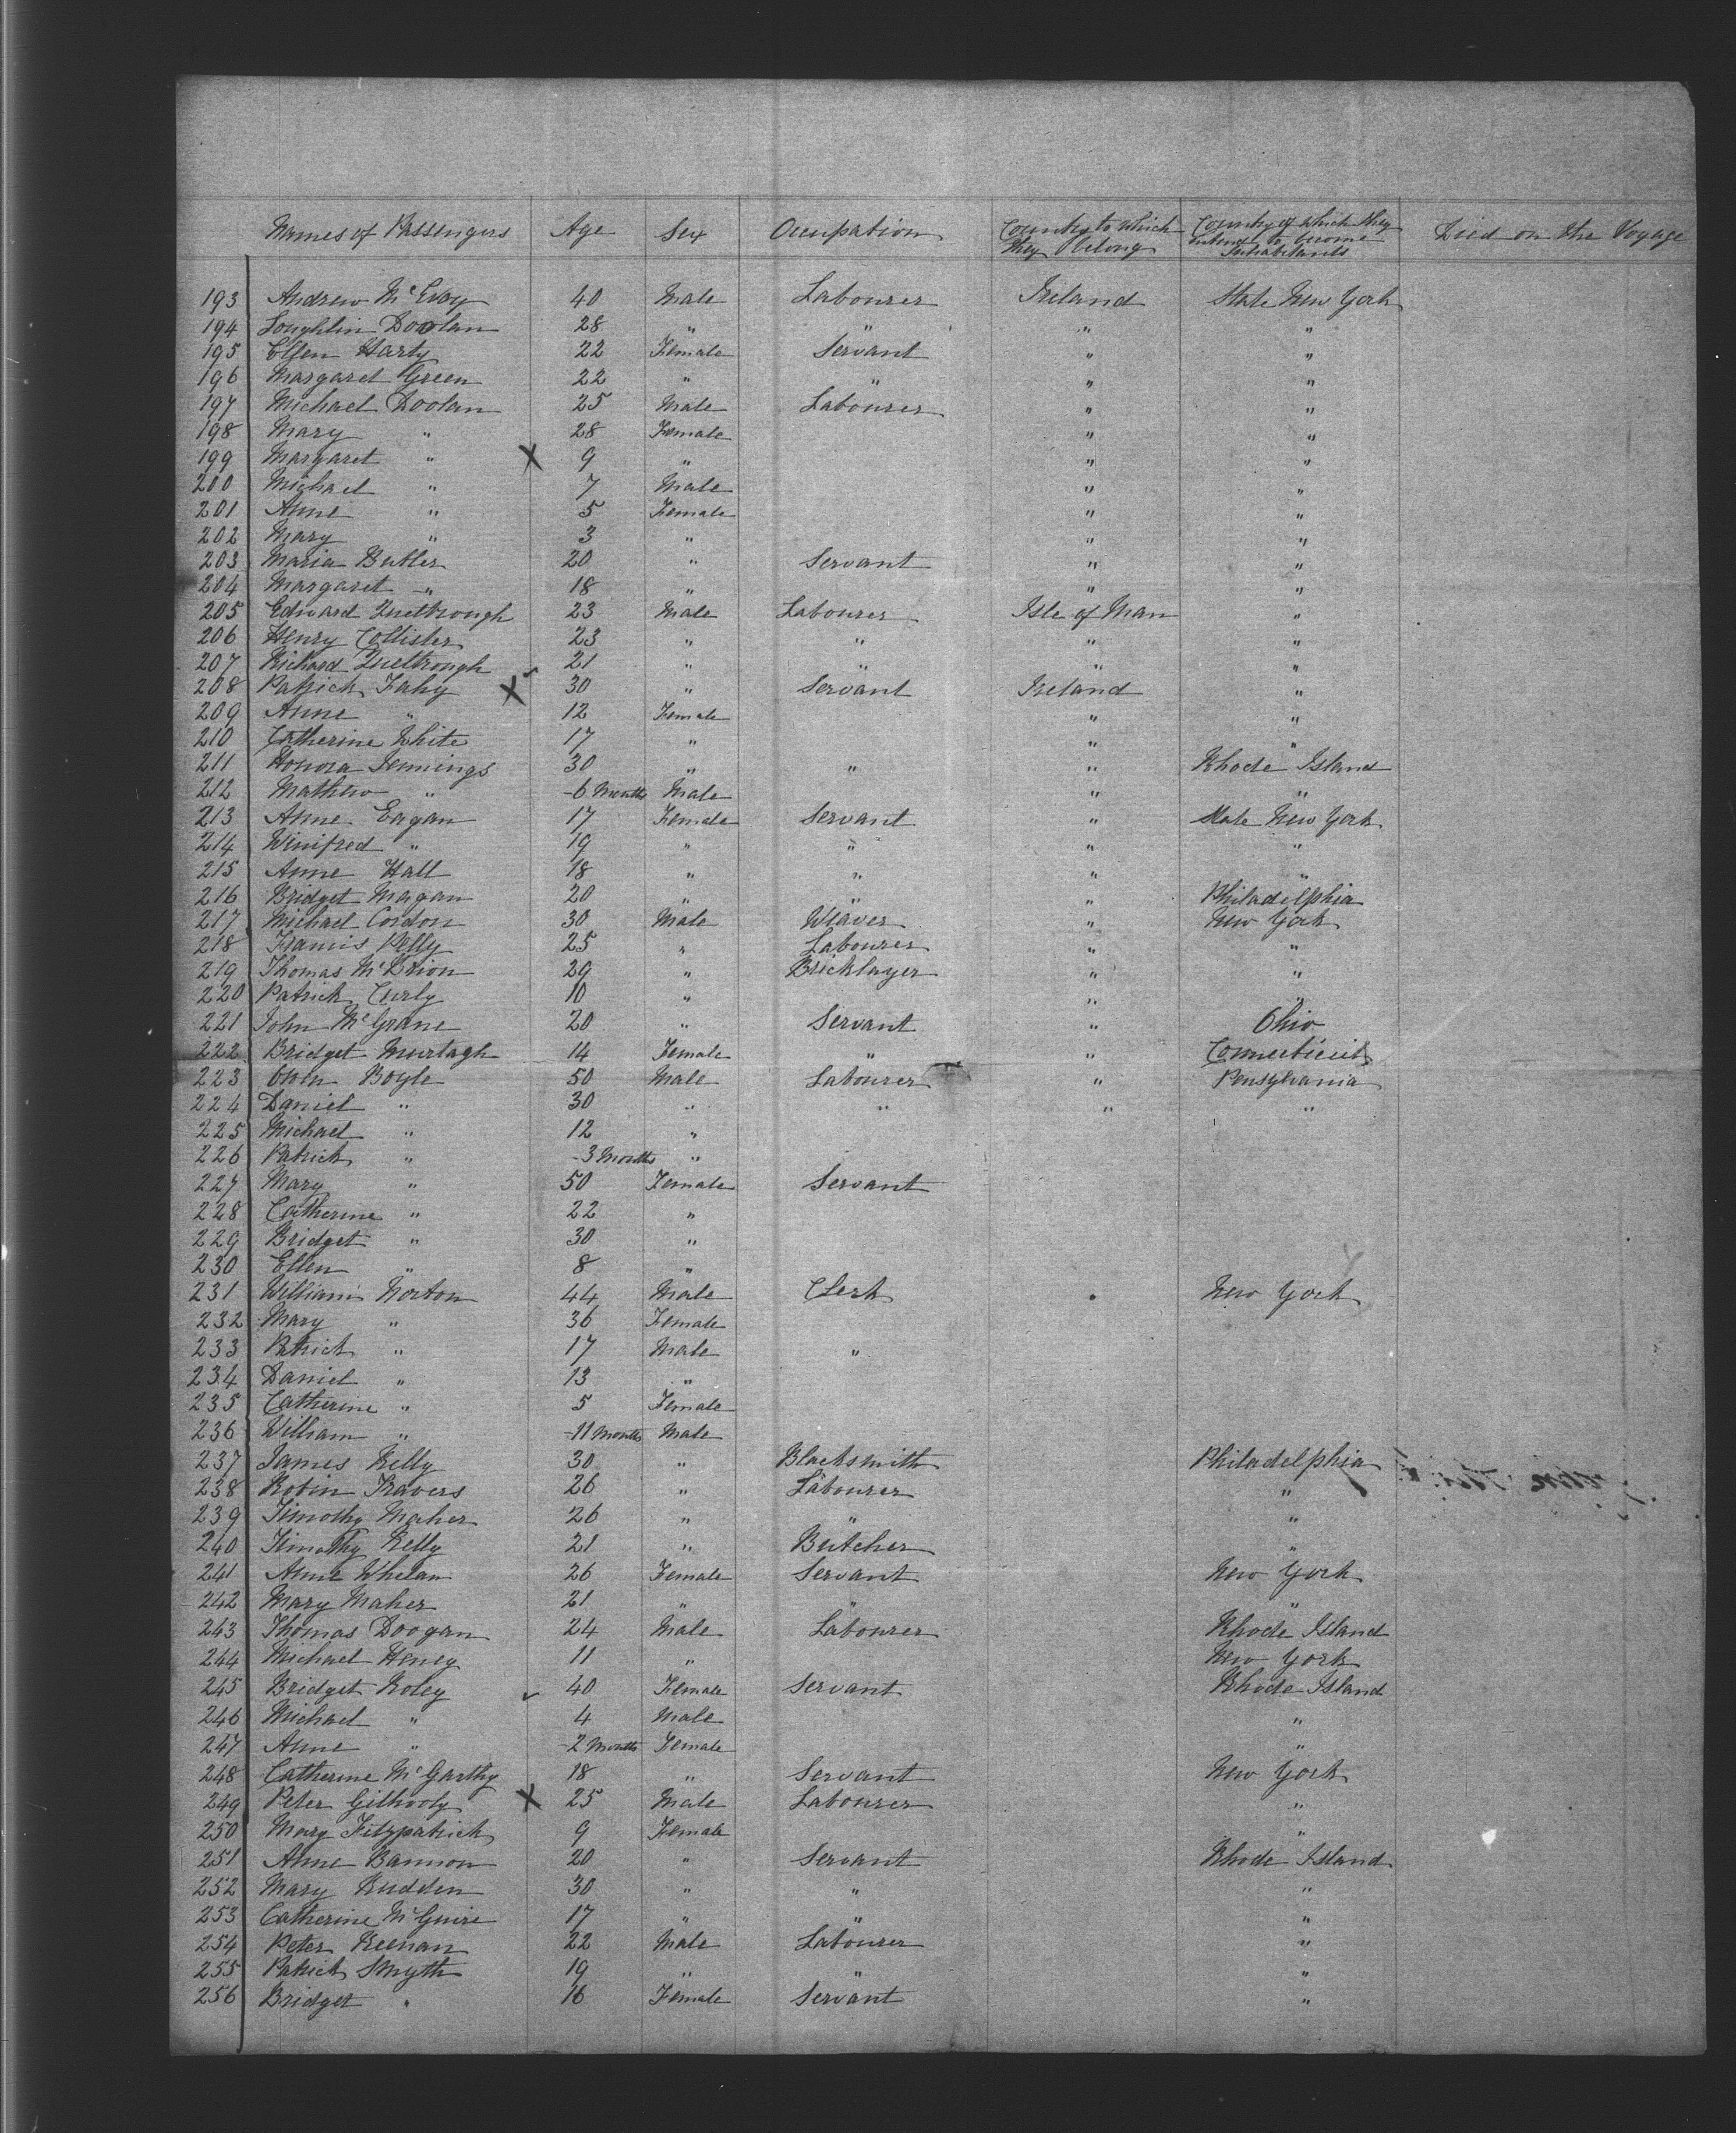 Names of Passengers Age Sex Occupation Country to which they belong Country of which they intend to become Inhabitants Died on the Voyage
193 Andrew McEvoy 40 Male Labourer Ireland State New York
194 Loughlin Doolan 28 " " " "
195 Ellen Harty 22 Female Servant " "
196 Margaret Green 22 " " " "
197 Michael Doolan 25 Male Labourer " "
198 Mary " 28 Female " "
199 Margaret " X 9 " " "
200 Michael " 7 Male " "
201 Anne " 5 Female " "
202 Mary " 3 " " "
203 Maria Butler 20 " Servant " "
204 Margaret " 18 " " "
205 Edward Quethrough 23 Male Labourer Isle of Man "
206 Henry Collister 23 " " " "
207 Richard Quethrough 21 " " " "
208 Patrick Fahy X 30 " Servant Ireland "
209 Anne " 12 Female " "
210 Catherine White 17 " " "
211 Honora Jennings 30 " " " Rhode Island
212 Mathew " -6 Months Male " "
213 Anne Eagan 17 Female Servant " State New York
214 Winifred " 19 " " " "
215 Anne Hall 18 " " " "
216 Bridget Magan 20 " " " Philadelphia
217 Michael Cordon 30 Male Weaver " New York
218 Francis Kelly 25 " Labourer " "
219 Thomas McBrion 29 " Bricklayer " "
220 Patrick Curly 10 " " "
221 John McGrane 20 " Servant " Ohio
222 Bridget Murtagh 14 Female " " Connecticut
223 Owen Boyle 50 Male Labourer " Pensylvania
224 Daniel " 30 " " " "
225 Michael " 12 "
226 Patrick " -3 Months "
227 Mary " 50 Female Servant
228 Catherine " 22 "
229 Bridget " 30 "
230 Ellen " 8 "
231 William Norton 44 Male Clerk New York
232 Mary " 36 Female
233 Patrick " 17 Male "
234 Daniel " 13 "
235 Catherine " 5 Female
236 William " -11 Months Male
237 James Kelly 30 " Blacksmith Philadelphia
238 Robin Travers 26 " Labourer "
239 Timothy Maher 26 " " "
240 Timothy Kelly 21 " Butcher "
241 Anne Whelan 26 Female Servant New York
242 Mary Maher 21 " " "
243 Thomas Doogan 24 Male Labourer Rhode Island
244 Michael Heney 11 " New York
245 Bridget Roley 40 Female Servant Rhode Island
246 Michael " 4 Male "
247 Anne " -2 Months Female "
248 Catherine McGarthy 18 " Servant New York
249 Peter Gilhooly X 25 Male Labourer "
250 Mary Fitzpatrick 9 Female "
251 Anne Bannon 20 " Servant Rhode Island
252 Mary Rudden 30 " " "
253 Catherine McGuire 17 " " "
254 Peter Keenan 22 Male Labourer "
255 Patrick Smyth 19 " " "
256 Bridget " 16 Female Servant "